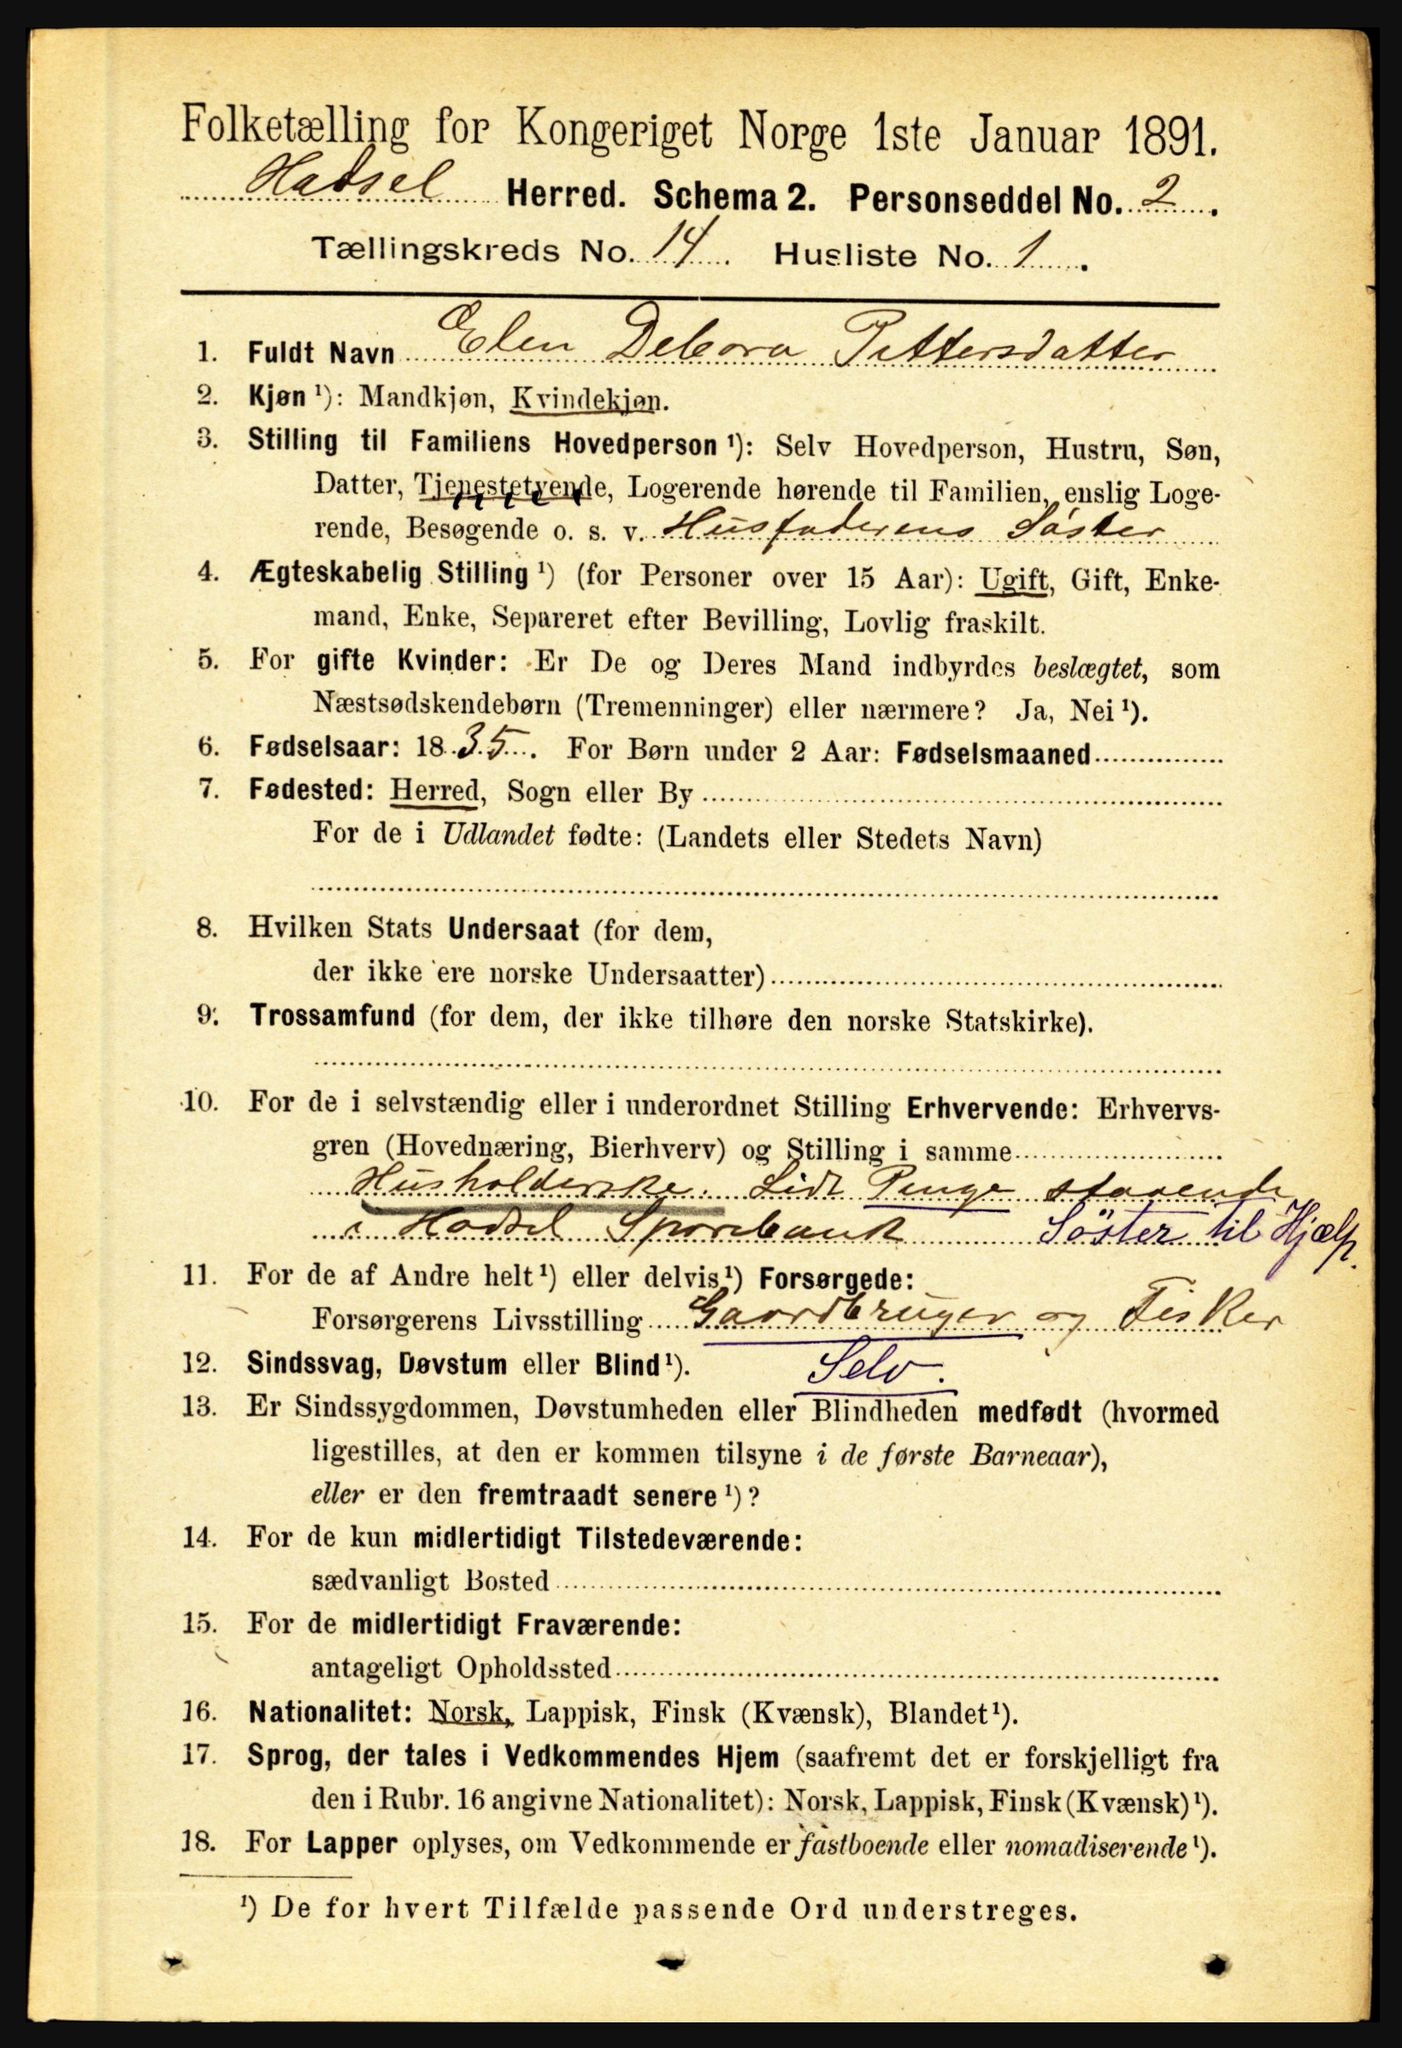 Folketælling for Kongeriget Norge 1ste Januar 1891.
Hadsel Herred. Schema 2. Personseddel No. 2.
Tællingskreds No. 14. Husliste No. 1.
1. Fuldt Navn Elen Debora Pettersdatter
2. Kjøn ¹): Mandkjøn, Kvindekjøn.
3. Stilling til Familiens Hovedperson ¹): Selv Hovedperson, Hustru, Søn,
Datter, Tjenestetyende, Logerende hørende til Familien, enslig Loge-
rende, Besøgende o. s. v. Husfaderens Søster
4. Ægteskabelig Stilling ¹) (for Personer over 15 Aar): Ugift, Gift, Enke-
mand, Enke, Separeret efter Bevilling, Lovlig fraskilt.
5. For gifte Kvinder: Er De og Deres Mand indbyrdes beslægtet, som
Næstsødskendebørn (Tremenninger) eller nærmere? Ja, Nei ¹).
6. Fødselsaar: 1835. For Børn under 2 Aar: Fødselsmaaned
7. Fødested: Herred, Sogn eller By
For de i Udlandet fødte: (Landets eller Stedets Navn)
8. Hvilken Stats Undersaat (for dem,
der ikke ere norske Undersaatter)
9. Trossamfund (for dem, der ikke tilhøre den norske Statskirke).
10. For de i selvstændig eller i underordnet Stilling Erhvervende: Erhvervs-
gren (Hovednæring, Bierhverv) og Stilling i samme
Husholderske. Lidt Penge staaende
i Hadsel Sparebank Søster til Hjælp.
11. For de af Andre helt ¹) eller delvis ¹) Forsørgede:
Forsørgerens Livsstilling Gaardbruger og Fisker
12. Sindssvag, Døvstum eller Blind ¹). Selv.
13. Er Sindssygdommen, Døvstumheden eller Blindheden medfødt (hvormed
ligestilles, at den er kommen tilsyne i de første Barneaar),
eller er den fremtraadt senere ¹)?
14. For de kun midlertidigt Tilstedeværende:
sædvanligt Bosted
15. For de midlertidigt Fraværende:
antageligt Opholdssted
16. Nationalitet: Norsk, Lappisk, Finsk (Kvænsk), Blandet ¹).
17. Sprog, der tales i Vedkommendes Hjem (saafremt det er forskjelligt fra
den i Rubr. 16 angivne Nationalitet): Norsk, Lappisk, Finsk (Kvænsk) ¹).
18. For Lapper oplyses, om Vedkommende er fastboende eller nomadiserende ¹).
¹) De for hvert Tilfælde passende Ord understreges.